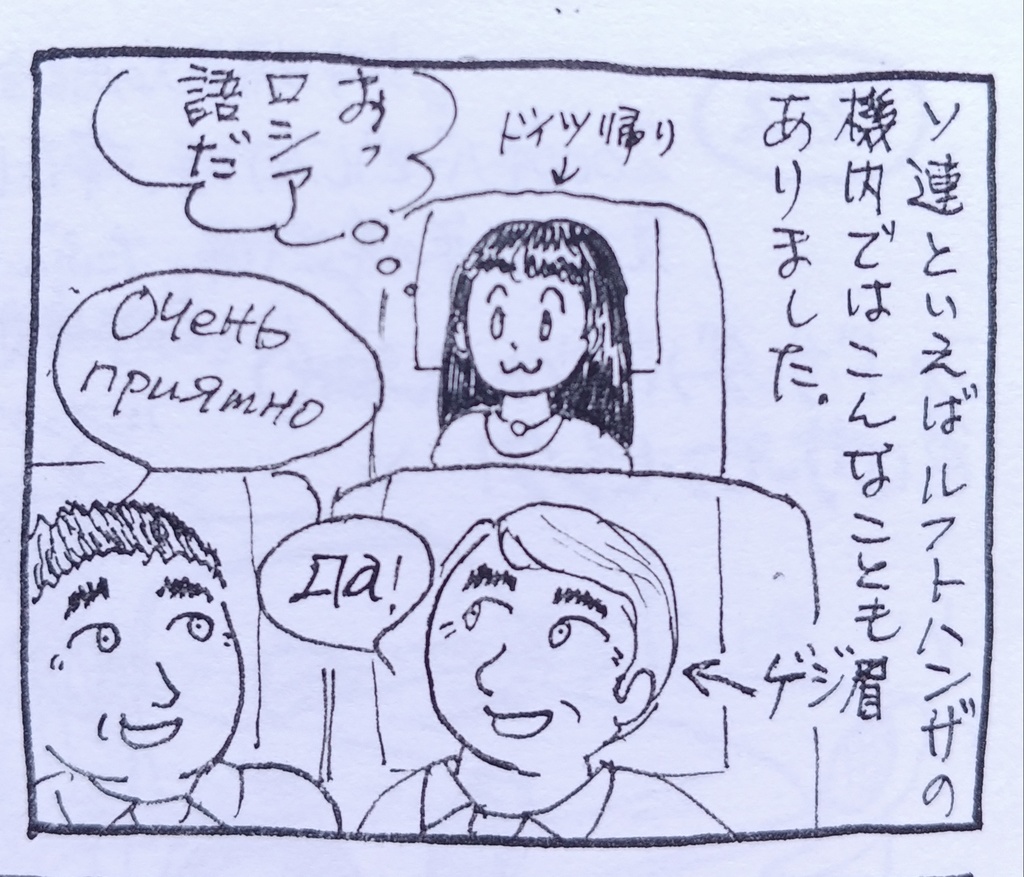 ソ連といえばルフトハンザの
機内ではこんなことも
ありました。
ドイツ帰り
おっ
ロシア
語だ
Очень
приятно
Да!
ゲジ眉